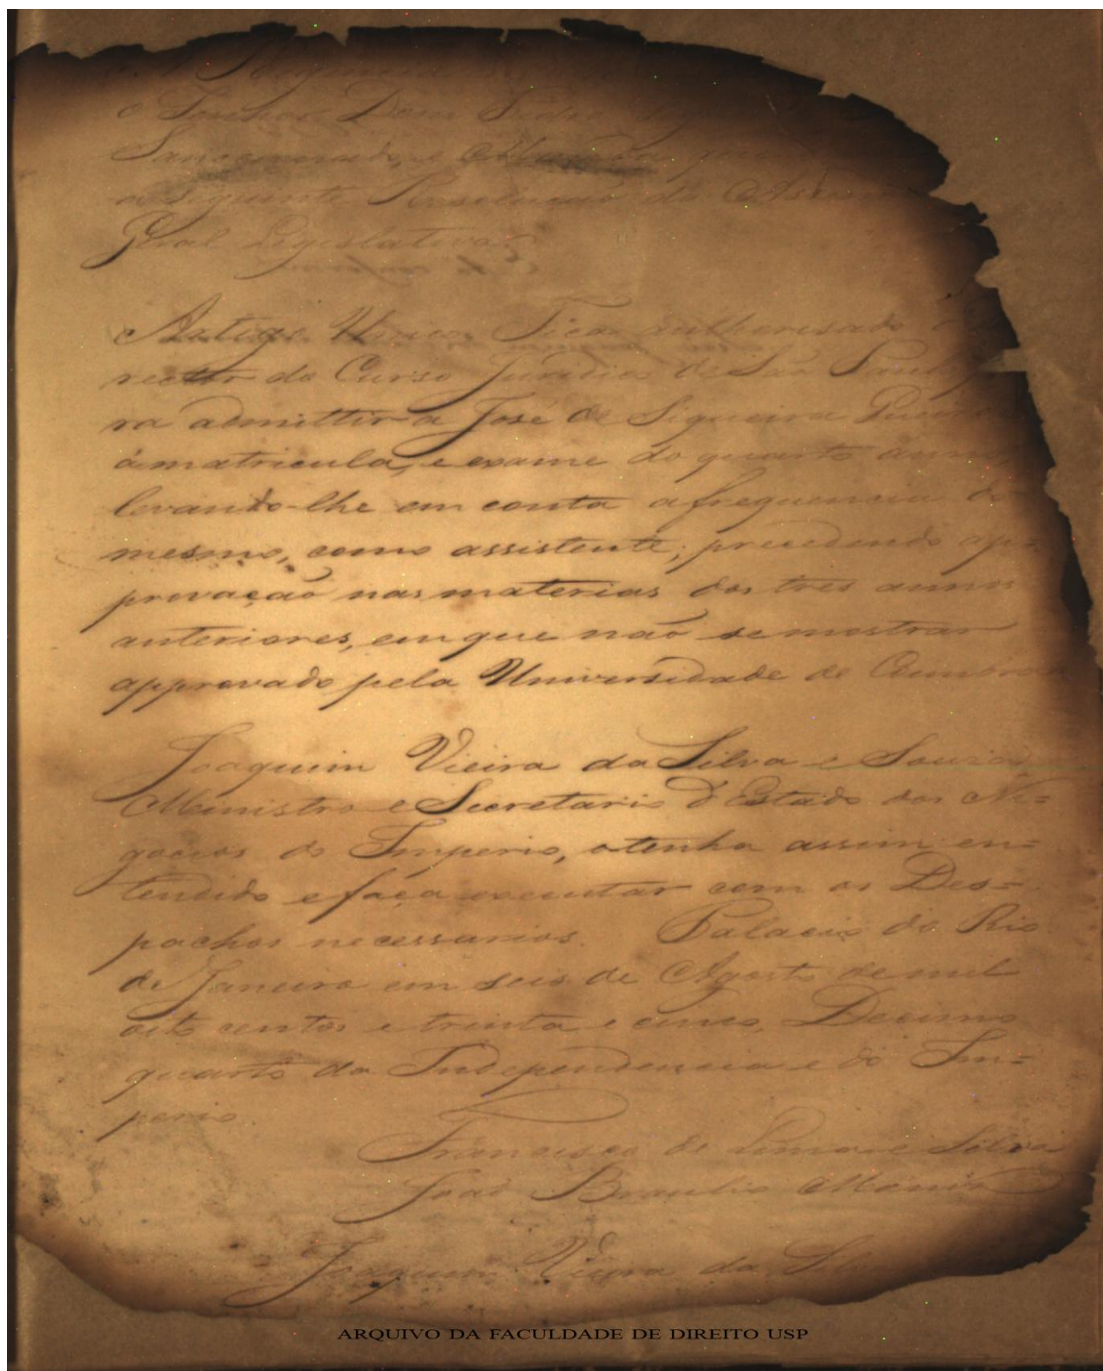 A Regencia
o Senhor Dom Pedro
Sanccionado, e Manda que
a seguinte Resolução da Assem
Geral Legislativa.
Artigo Unico. Fica authorisado o
rector do Curso Juridico de São Paulo
ra admittir a José de Siqueira Queiroz
á matricula, e exame do quarto anno,
levando-lhe em conta a frequencia do
mesmo, como assistente; precedendo ap=
provação nas materias dos tres annos
anteriores, em que não se mostrar
approvado pela Universidade de Coimbra
Joaquim Vieira da Silva e Souza
Ministro e Secretario d'Estado dos Ne=
gocios do Imperio, o tenha assim en=
tendido e faça executar com os Des=
pachos necessarios. Palacio do Rio
de Janeiro em seis de Agosto de mil
oito centos e trinta e cinco, Decimo
quarto da Independencia e do Im=
perio.
Francisco de Lima e Silva
João Braulio Moniz
Joaquim Vieira da Sil
ARQUIVO DA FACULDADE DE DIREITO USP